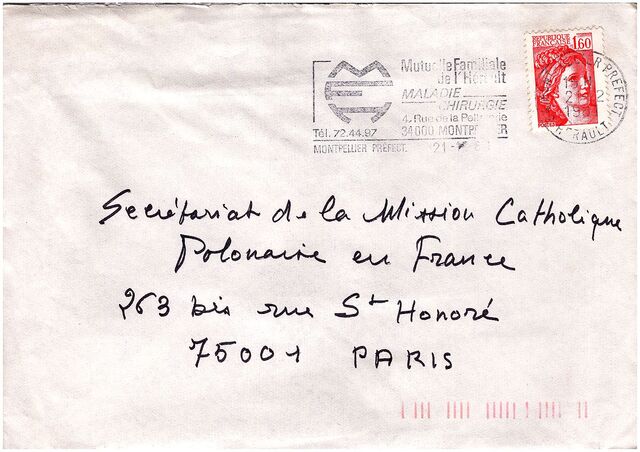 Mutuelle Familiale
de l'Hérault
MALADIE
CHIRURGIE
4, Rue de la Pellerie
34000 MONTPELLIER
Tél. 72.44.97
MONTPELLIER PREFECT.
21-
REPUBLIQUE
FRANCAISE 1,60
PREFECT.
HERAULT
Secrétariat de la Mission Catholique
Polonaise en France
263 bis rue St Honoré
75001 PARIS